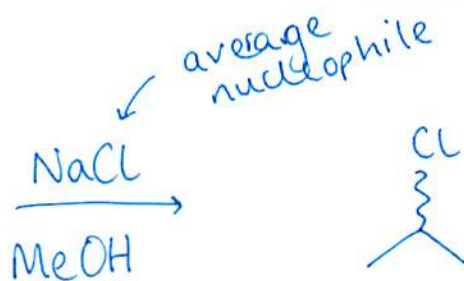 average
nucleophile
NaCl
MeOH
Cl